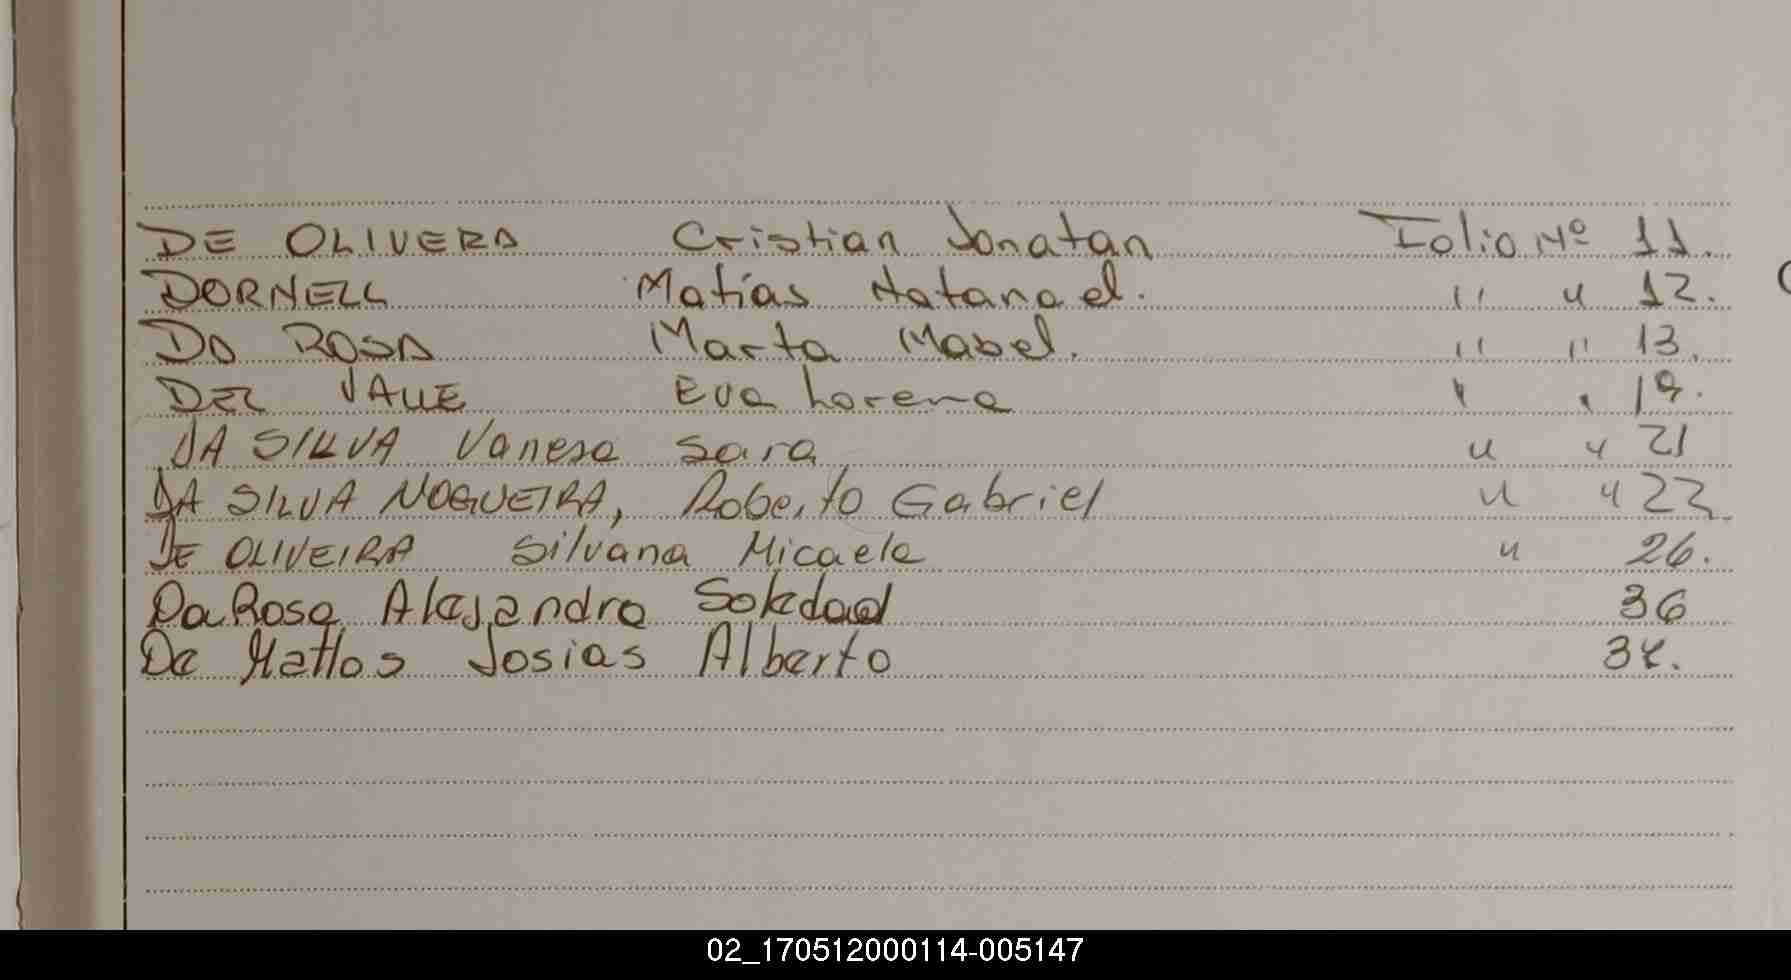 DE OLIVERA Cristian Jonatan Folio Nº 11.
DORNELL Matías Natanael. " " 12.
DA ROSA Marta Mabel. " " 13.
DEL VALLE Eva Lorena " " 19.
DA SILVA Vanesa Sara " " 21
DA SILVA NOGUEIRA, Roberto Gabriel " " 22
DE OLIVEIRA Silvana Micaela " 26.
Da Rosa Alejandra Soledad 36
De Mattos Josias Alberto
02_170512000114-005147